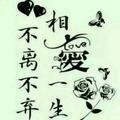 相愛一生
Love
不离不弃